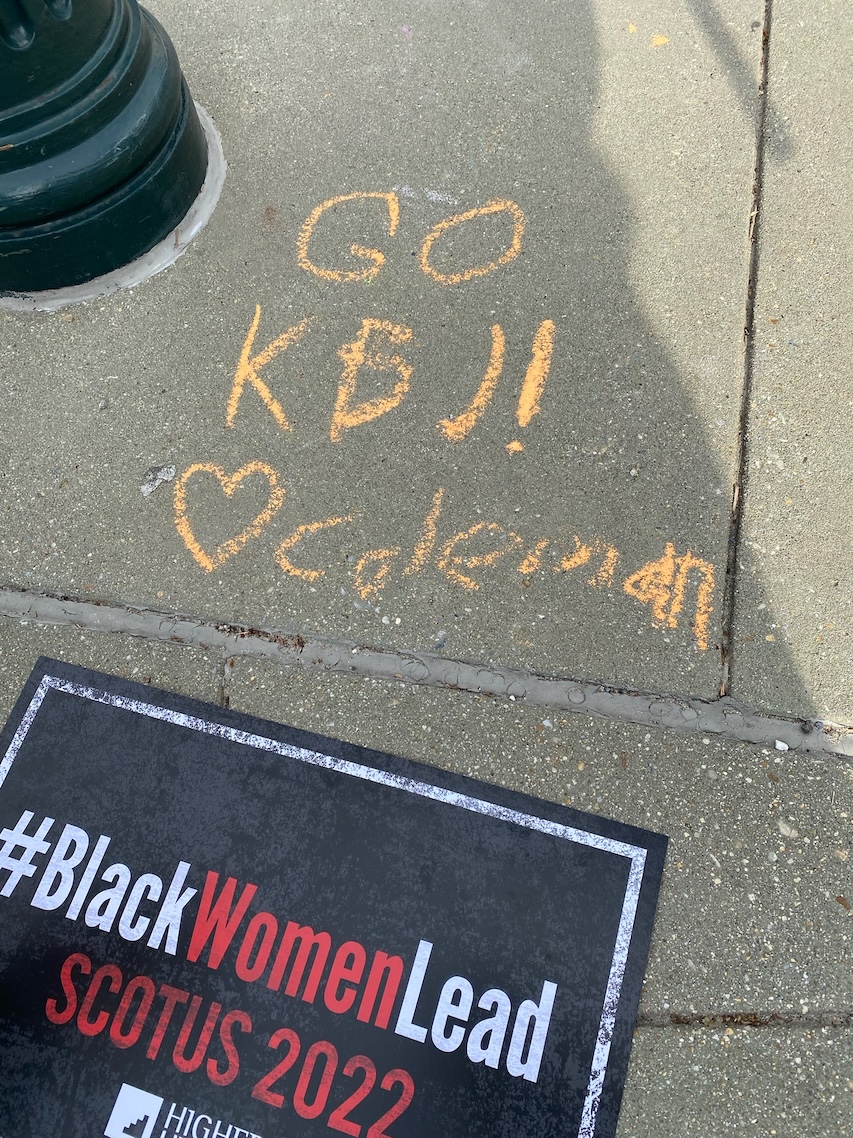 GO
KBJ!
♡ coleman
#BlackWomenLead
SCOTUS 2022